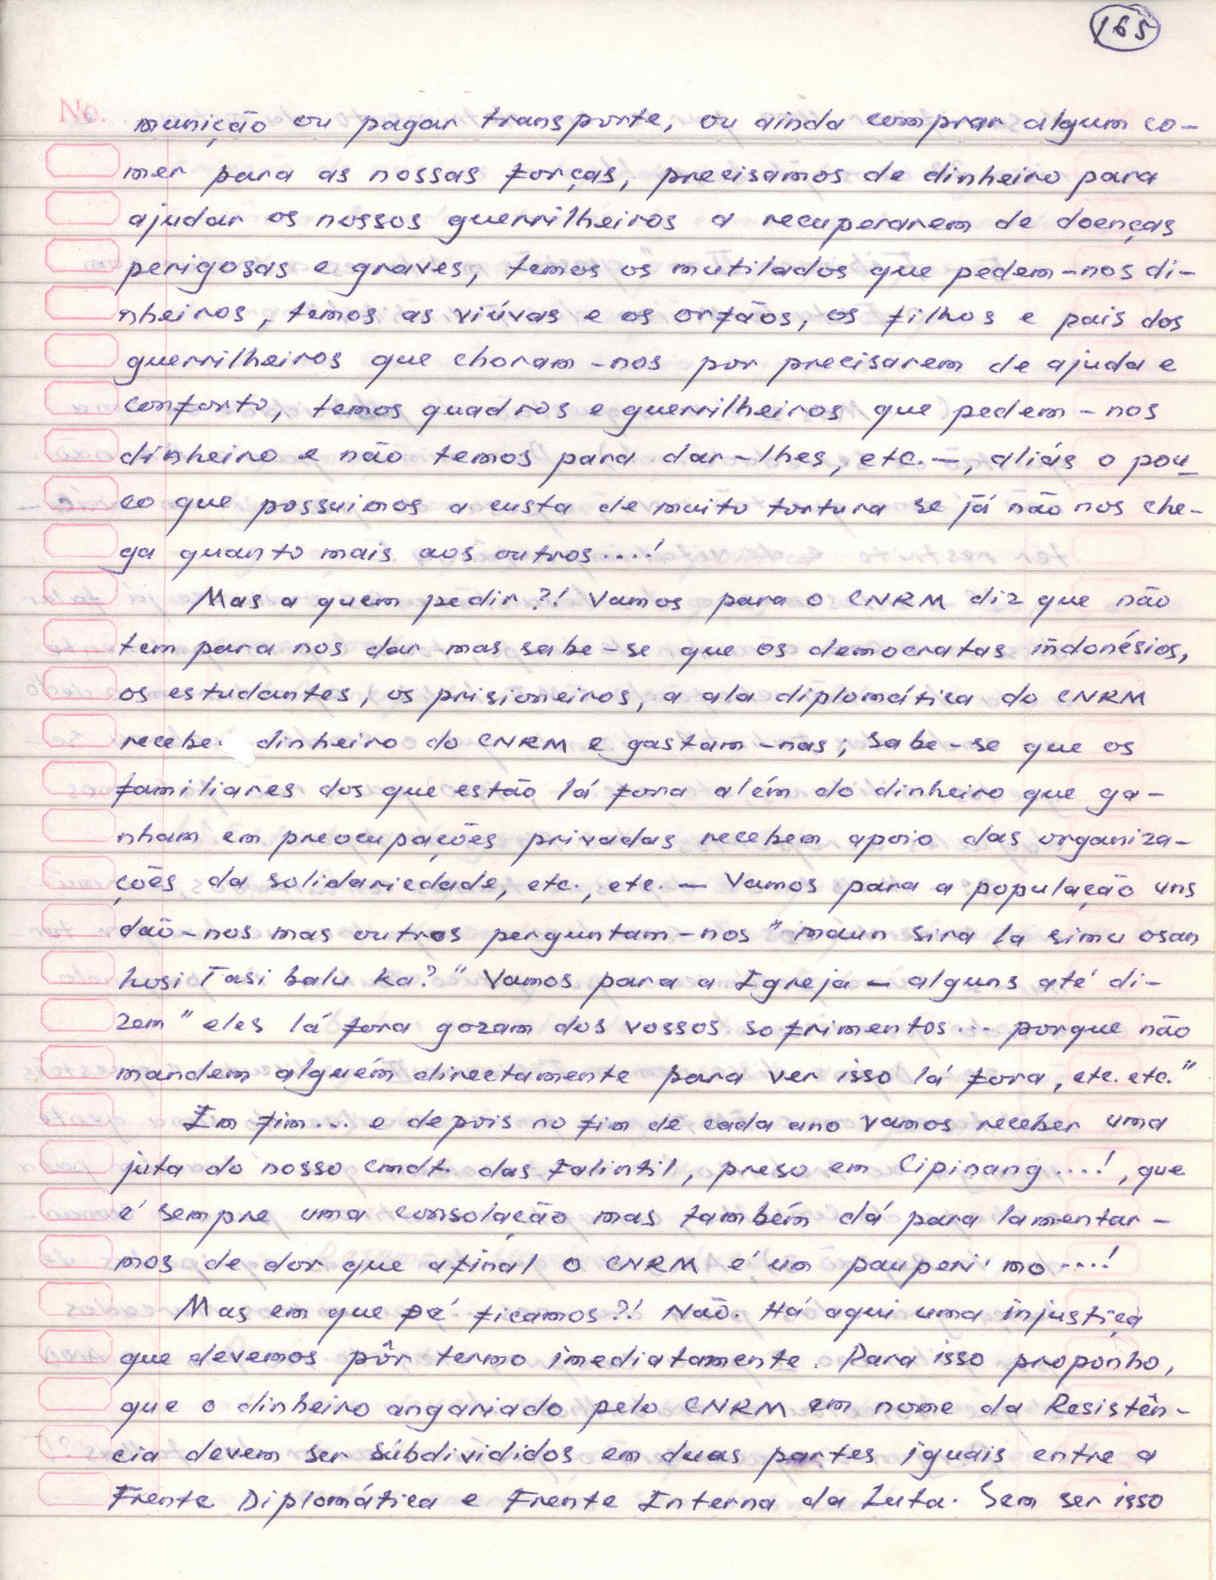 165
No.
munição ou pagar transporte, ou ainda comprar algum co-
mer para as nossas forças, precisamos de dinheiro para
ajudar os nossos guerrilheiros a recuperarem de doenças
perigosas e graves, temos os mutilados que pedem-nos di-
nheiros, temos as viúvas e os orfãos, os filhos e pais dos
guerrilheiros que choram-nos por precisarem de ajuda e
conforto, temos quadros e guerrilheiros que pedem-nos
dinheiro e não temos para dar-lhes, etc.—, aliás o pou
co que possuimos a custa de muito tortura se já não nos che-
ga quanto mais aos outros....!
Mas a quem pedir?! Vamos para o CNRM diz que não
tem para nos dar mas sabe-se que os democratas indonésios,
os estudantes, os prisioneiros, a ala diplomática do CNRM
recebe dinheiro do CNRM e gastam-nas; sabe-se que os
familiares dos que estão lá fora além do dinheiro que ga-
nham em preocupações privadas recebem apoio das organiza-
ções da solidariedade, etc., etc. — Vamos para a população uns
dão-nos mas outros perguntam-nos "maun sira la simu osan
husi Tasi balu ka?" Vamos para a Igreja — alguns até di-
zem "eles lá fora gozam dos vossos sofrimentos... porque não
mandem alguém directamente para ver isso lá fora, etc. etc."
Em fim... e depois no fim de cada ano vamos receber uma
juta do nosso cmdt. das Falintil, preso em Cipinang....!, que
é sempre uma consolação mas também dá para lamentar-
mos de dor que afinal o CNRM é um pauperi'mo....!
Mas em que pé ficamos?! Não. Há aqui uma injustiça
que devemos pôr termo imediatamente. Para isso proponho,
que o dinheiro angariado pelo CNRM em nome da Resistên-
cia devem ser subdivididos em duas partes iguais entre a
Frente Diplomática e Frente Interna da Luta. Sem ser isso